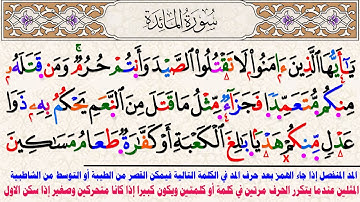 سُورَةُ المَائِدَة
يَـٰٓأَيُّهَا ٱلَّذِينَ ءَامَنُوا۟ لَا تَقْتُلُوا۟ ٱلصَّيْدَ وَأَنتُمْ حُرُمٌۭ ۚ وَمَن قَتَلَهُۥ
مِنكُم مُّتَعَمِّدًۭا فَجَزَآءٌۭ مِّثْلُ مَا قَتَلَ مِنَ ٱلنَّعَمِ يَحْكُمُ بِهِۦ ذَوَا
عَدْلٍۢ مِّنكُمْ هَدْيًۢا بَـٰلِغَ ٱلْكَعْبَةِ أَوْ كَفَّـٰرَةٌۭ طَعَامُ مَسَـٰكِينَ
المد المنفصل إذا جاء الهمز بعد حرف المد في الكلمة التالية فيمكن القصر من الطيبة أو التوسط من الشاطبية
المثلين عندما يتكرر الحرف مرتين في كلمة أو كلمتين ويكون كبيرا إذا كانا متحركين وصغير إذا سكن الاول